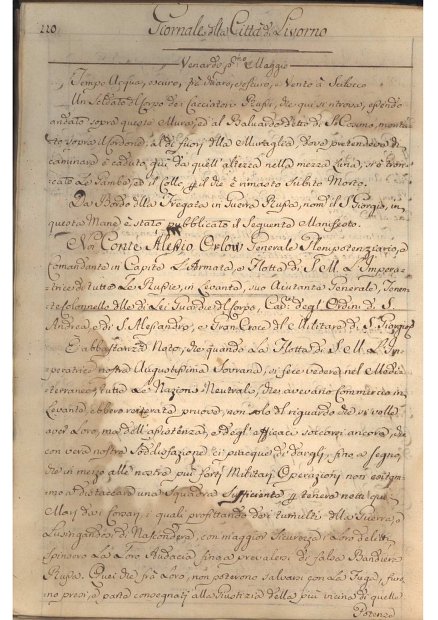 220 Giornale della Città di Livorno
Venerdì p.mo Maggio
Tempo Acqua, oscuro, e Vento à Scilocco
Un Soldato del Corpo de Cacciatori Russi, che qui si ritrova, essendo
andato sopra queste Mura, ed al Baluardo detto di S. Cosimo, monta-
to sopra il Cordone, al di fuori della Muraglia, dove pretendeva di
caminare è caduto, quì da quell'altezza nella mezza Luna, si è tron-
cato le Gambe, ed il Collo, il che è rimasto subito Morto.
Da Bordo della Fregata in Guerra Russa, nom.ta il S. Giorgio, in
questa Mane è stato pubblicato il Seguente Manifesto.
Noi Conte Alessio Orlow Generale Plenipotenziario, e
Comandante in Capite L'Armata, e Flotta di S. M. L'Impera-
trice di tutte Le Russie, in Levante, suo Aiutante Generale, Tenen-
te Colonnello delle di Lei Guardie del Corpo, Cav.re degl'Ordini di S.
Andrea, e di S. Alessandro, e Gran Croce del Militare di S. Giorgio
È abbastanza Noto, che quando La Flotta di S. M. L'Im-
peratrice nostra Augustissima Sovrana, si fece vedere nel Medi-
terraneo, tutte Le Nazioni Neutrale, che avevano Commercio in
Levante, ebbero reiterata pruova, non solo del riguardo che si volle
aver Loro, ma dell'assistenza, e degl'efficaci soccorsi ancora, che
con vera nostra soddisfazione ci piacque di dargli, fino a segno,
che in mezzo alle nostre più forti Militari Operazioni non esitam-
mo a distaccare una Squadra Sufficiente p. tenere nette quei
Mari dai Corsari, i quali profittando dei tumulti della Guerra, e
Lusingandosi di Nascondere, con maggior Sicurezza i Loro delitti,
Spinsero La Loro Audacia fino a prevalersi di falsa Bandiera
Russa. Quei che frà Loro, non poterono salvarsi con La Fuga, furo-
no presi, e parte consegnati alla Giustizia della più vicina di quelle
Potenze